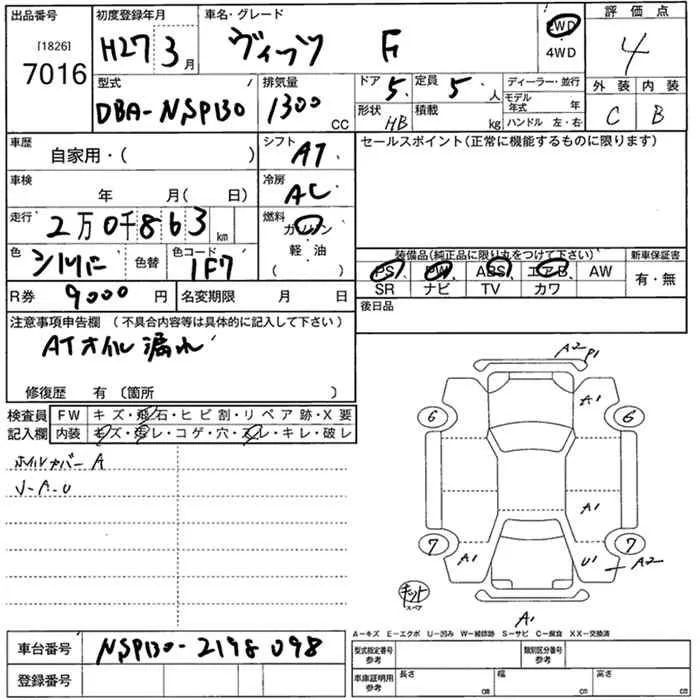 出品番号 初度登録年月 車名・グレード 評価点
[1826] 7016 H27 3月 ヴィッツ F 2WD 4WD 4
型式 排気量 ドア 5. 定員 5.人 ディーラー・並行 外装 内装
DBA-NSP130 1300 CC 形状 HB 積載 kg モデル年式 年 ハンドル 左・右 C B
車歴 自家用・( ) シフト AT. セールスポイント(正常に機能するものに限ります)
車検 年 月( 日) 冷房 AC
走行 2万0千863 km 燃料 ガソリン 軽・油 ( )
色 シルバー 色替 色コード 1F7
装備品(純正品に限り丸をつけて下さい) 新車保証書
PS PW ABS エアB AW 有・無
SR ナビ TV カワ
R券 9000円 名変期限 月 日 後日品
注意事項申告欄 (不具合内容等は具体的に記入して下さい)
ATオイル漏れ
修復歴 有 〔箇所 〕
検査員 FW キズ・飛石・ヒビ割・リペア跡・X要
記入欄 内装 キズ・汚レ・コゲ・穴・スレ・キレ・破レ
ホイルカバー A
J-A-U
A2 P1
A1
6 6
A1
7 A1 U1 7 A2
キット スペア
A1
A-キズ E-エクボ U-凹み W-補修跡 S-サビ C-腐食 XX-交換済
車台番号 NSP130-2198098
型式指定番号 参考 類別区分番号 参考
登録番号
車庫証明用 参考 長さ cm 幅 cm 高さ cm